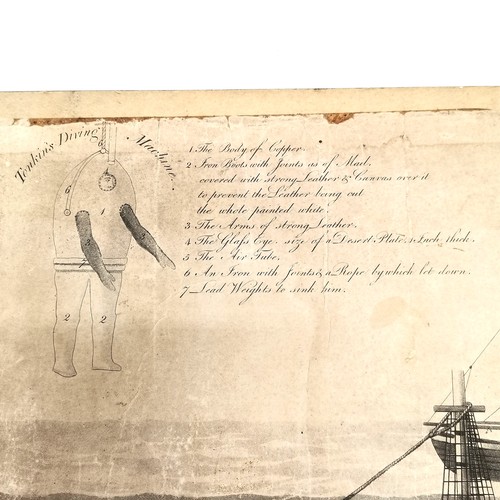 Tonkin's Diving Machine.
1 The Body of Copper.
2 Iron Boots with Joints as of Mail,
covered with strong Leather & Canvas over it
to prevent the Leather being cut
the whole painted white.
3 The Arms of strong Leather.
4 The Glaſs Eye size of a Desert Plate 1 Inch thick.
5 The Air Tube,
6 An Iron with Joints & a Rope by which let down.
7 Lead Weights to sink him.
6
6
1
3
2 2